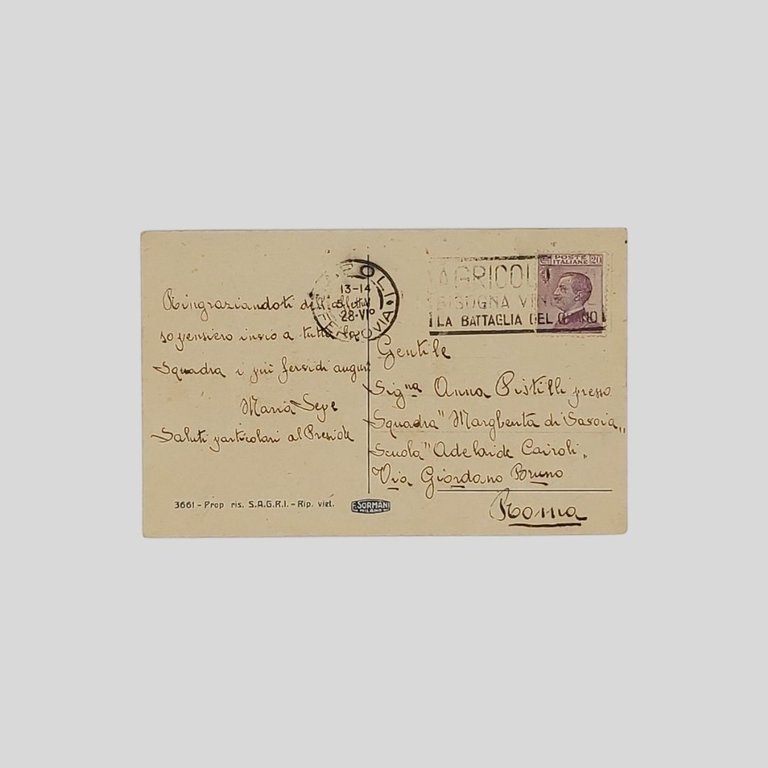 POSTE ITALIANE 20
NAPOLI
13-14
28-VI°
FERROVIA
AGRICOL
BISOGNA VIN
LA BATTAGLIA DEL GRANO
Ringraziandoti
so pensiero invio a tutta la
Squadra i più fervidi auguri
Maria Sepe
Saluti particolari al Preside
Gentile
Signa Anna Pistilli presso
Squadra "Margherita di Savoia„
Scuola "Adelaide Cairoli„
Via Giordano Bruno
Roma
3661 - Prop ris. S.A.G.R.I. - Rip. viet.
F. SORMANI
MILANO